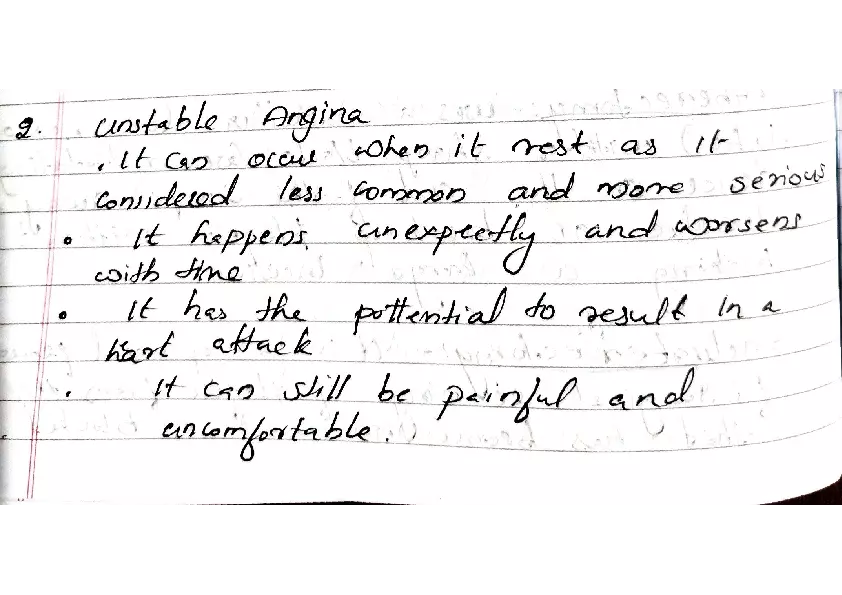 2. Unstable Angina
. It can occur when it rest as it
considered less common and more serious
• It happens unexpectly and worsens
with time
• It has the pottential to result in a
hart attack
• It can still be painful and
uncomfortable.